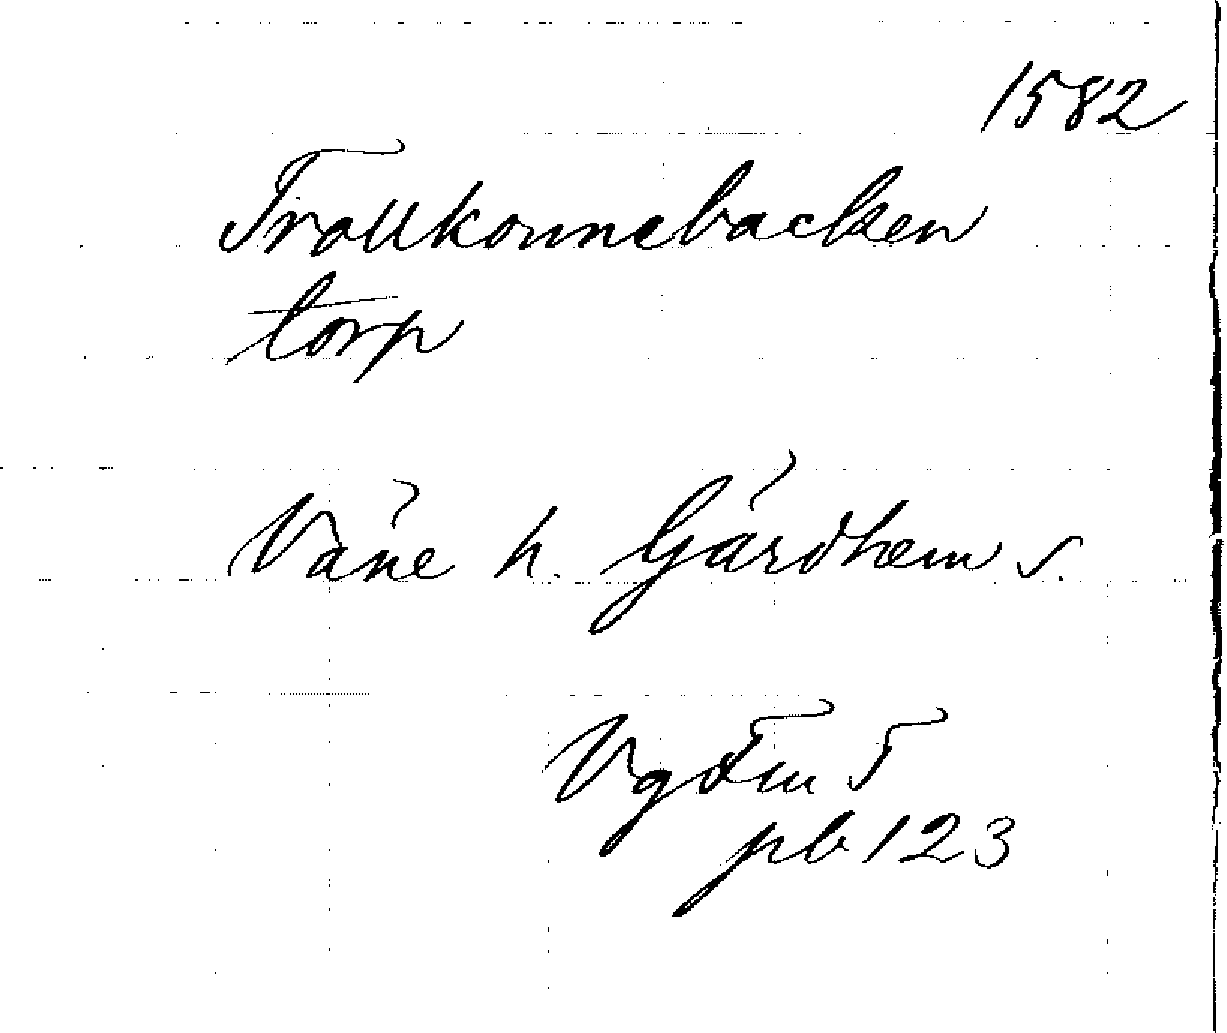 1582
Trollkonnebacken
torp
Väne h. Gärdhem s.
5
pb 123